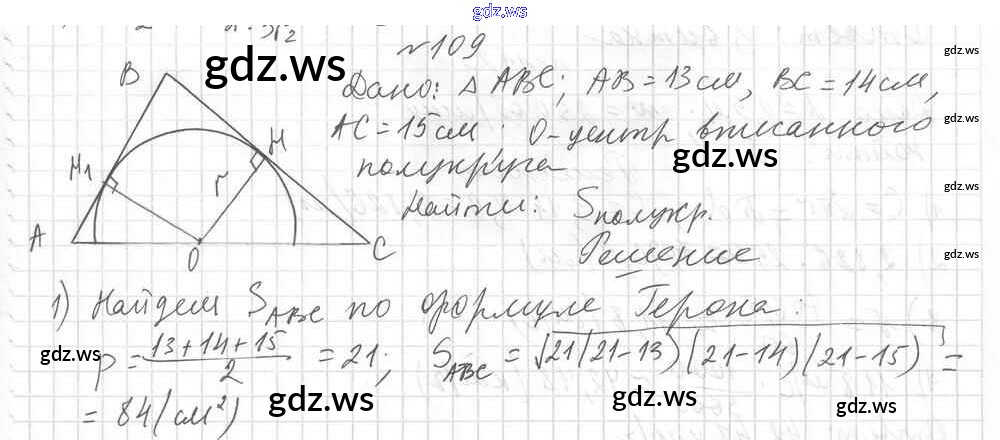 gdz.ws
№109
Дано: △ ABC; AB = 13 см, BC = 14 см,
AC = 15 см. O - центр вписанного
полукруга
Найти: Sполукр.
Решение
B
H1
H
r
A
O
C
1) Найдем S_ABC по формуле Герона:
p = (13+14+15)/2 = 21; S_ABC = √21(21-13)(21-14)(21-15) =
= 84 (см²)
gdz.ws
gdz.ws
gdz.ws
gdz.ws
gdz.ws
gdz.ws
gdz.ws
gdz.ws
gdz.ws
gdz.ws
gdz.ws